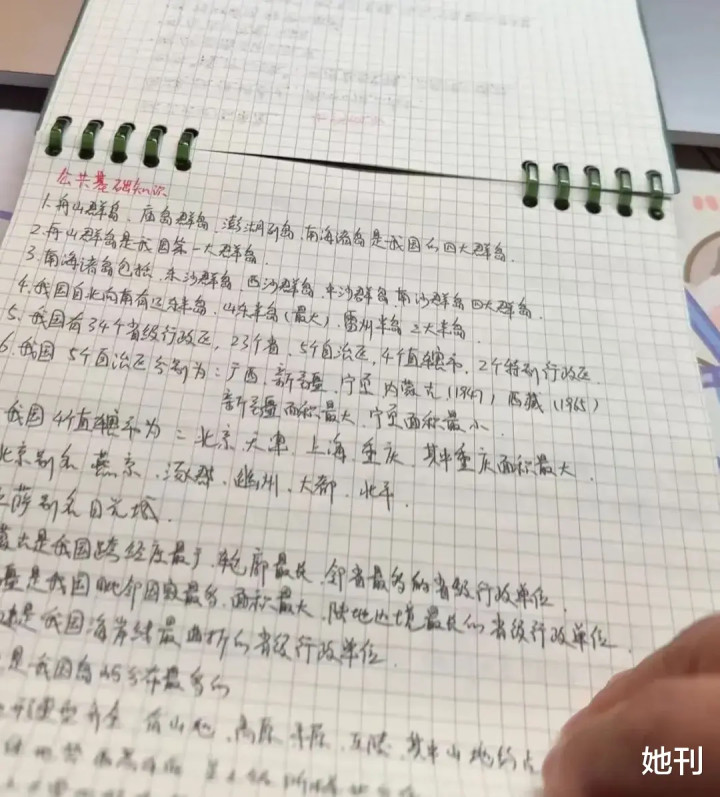 公共基础知识
1.舟山群岛、庙岛群岛、澎湖列岛、南海诸岛是我国的四大群岛.
2.舟山群岛是我国第一大群岛.
3.南海诸岛包括、东沙群岛、西沙群岛、中沙群岛、南沙群岛四大群岛.
4.我国自北向南有辽东半岛、山东半岛(最大)、雷州半岛 3大半岛.
5.我国有34个省级行政区,23个省、5个自治区,4个直辖市,2个特别行政区.
6.我国 5个自治区分别为:广西、新疆、宁夏 内蒙古(1947),西藏(1965)
新疆面积最大、宁夏面积最小.
我国4个直辖市为:北京、天津、上海、重庆、其中重庆面积最大.
北京别名 燕京、涿郡、幽州、大都、北平.
萨别名日光城.
蒙古是我国跨经度最广、轮廓最长、邻省最多的省级行政单位.
疆是我国毗邻国家最多、面积最大、陆地边境最长的省级行政单位.
建是我国海岸线最曲折的省级行政单位.
是我国岛屿分布最多的
山地、高原、丘陵、其中山地约占
她刊